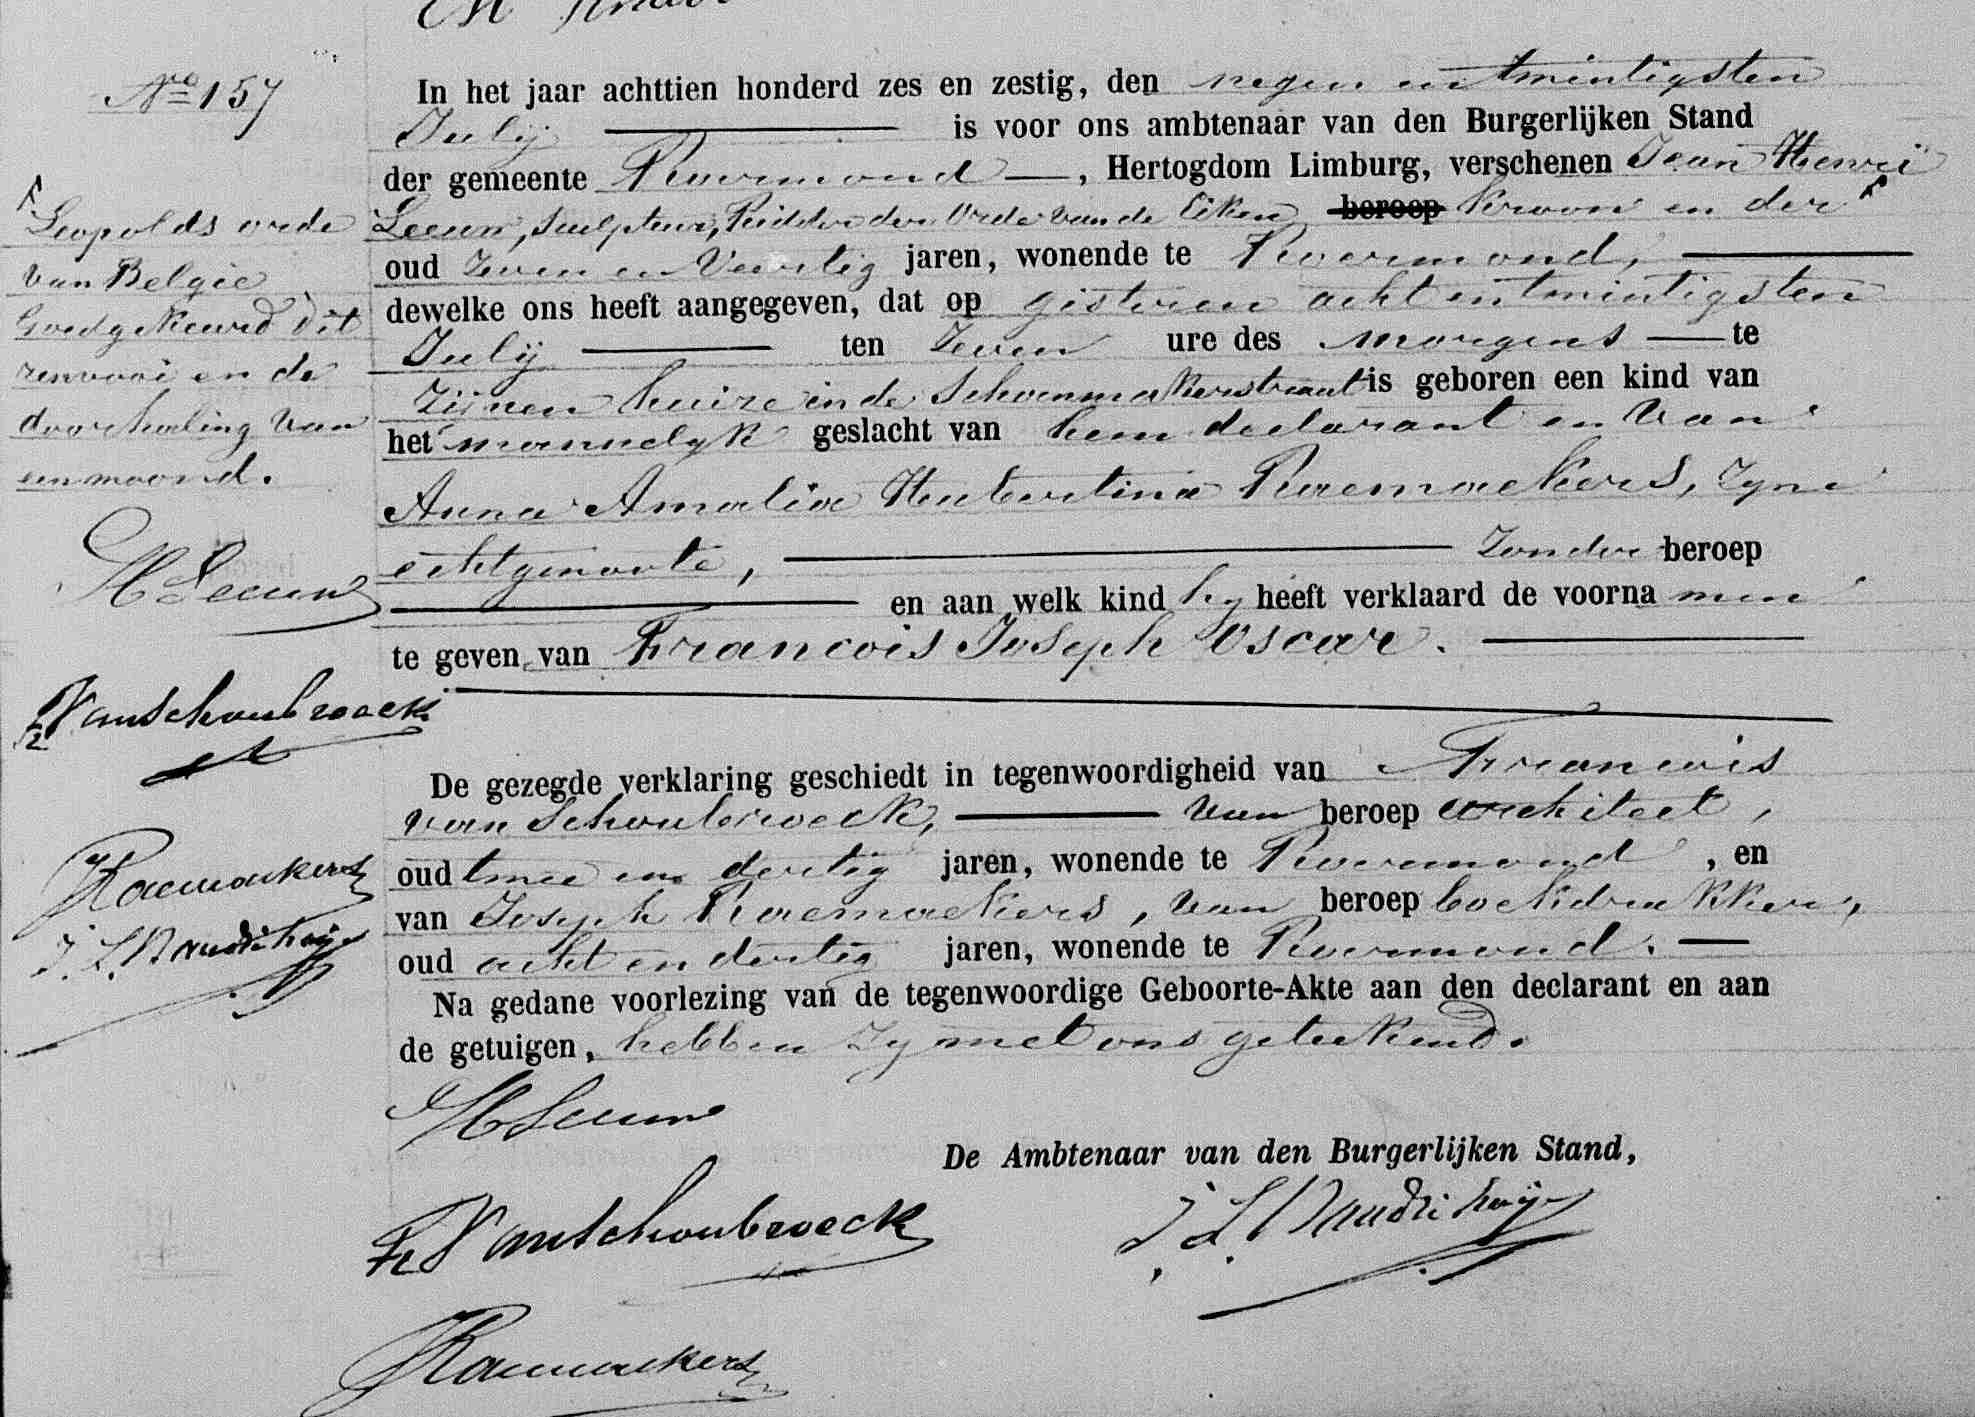 No 157
In het jaar achttien honderd zes en zestig, den negen en twintigsten
Julij is voor ons ambtenaar van den Burgerlijken Stand
der gemeente Roermond, Hertogdom Limburg, verschenen Jean Henri
Leeuw, Sculpteur, Ridder der Orde van de Eiken beroep Kroon en der
oud Zeven en Veertig jaren, wonende te Roermond,
dewelke ons heeft aangegeven, dat op gisteren acht en twintigsten
Julij ten Zeven ure des morgens te
Zijnen huize in de Schoenmakerstraat is geboren een kind van
het mannelyk geslacht van hem declarant en van
Anna Amalia Hubertina Raemaekers, Zyne
echtgenoote, Zonder beroep
en aan welk kind hy heeft verklaard de voorna men
te geven van Francois Joseph Oscar.
Leopolds orde
van Belgie
Goedgekeurd dit
renvooi en de
doorhaling van
een woord.
H Leeuw
Fr VanSchoubroeck
JRaemaekers
J. L. Vaudrihaye
De gezegde verklaring geschiedt in tegenwoordigheid van Francois
van Schoubroeck, van beroep architect,
oud twee en dertig jaren, wonende te Roermond, en
van Joseph Raemaekers, van beroep boekdrukker,
oud acht en dertig jaren, wonende te Roermond.
Na gedane voorlezing van de tegenwoordige Geboorte-Akte aan den declarant en aan
de getuigen, hebben Zy met ons geteekend.
H Leeuw
De Ambtenaar van den Burgerlijken Stand,
Fr VanSchoubroeck
J. L. Vaudrihaye
JRaemaekers